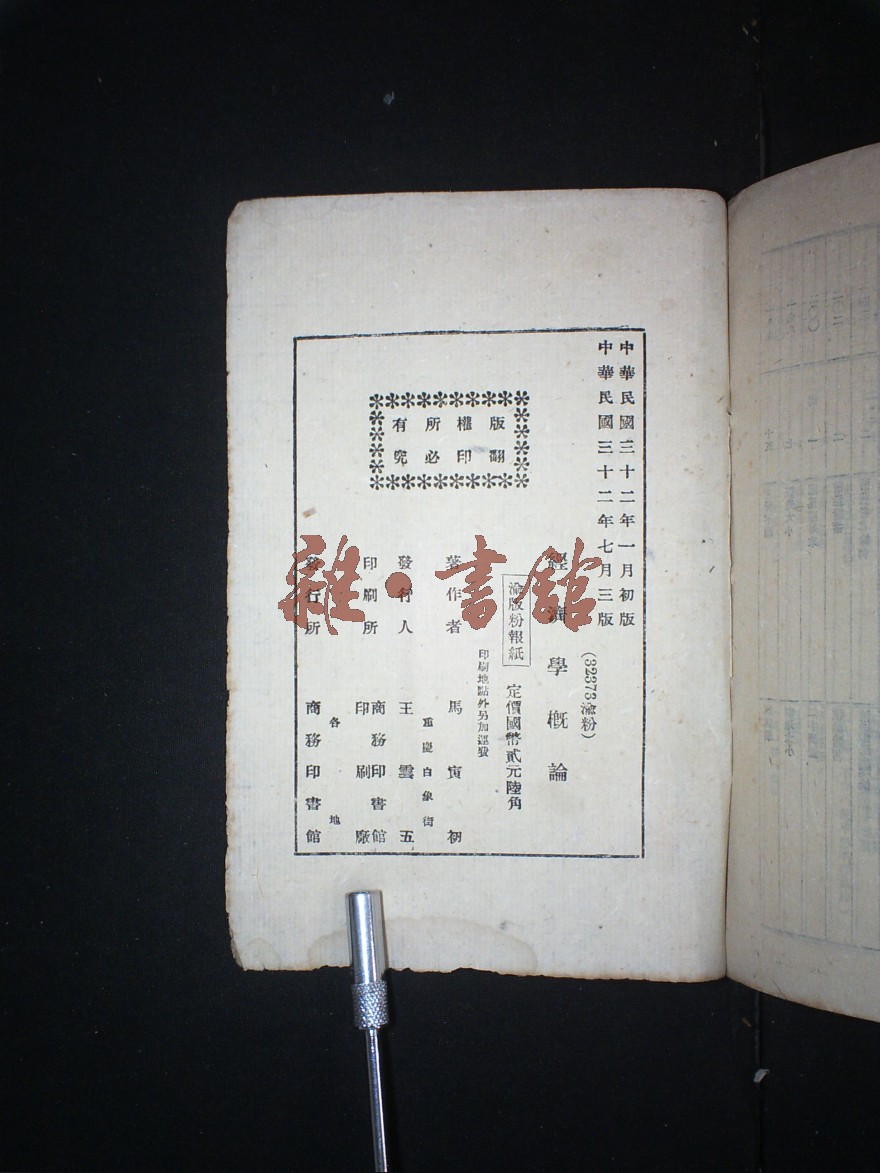 中華民國三十二年一月初版
中華民國三十二年七月三版
(32373渝粉)
經濟學概論
渝版粉報紙
定價國幣貳元陸角
印刷地點外另加運費
版權所有
翻印必究
著作者 馬寅初
重慶白象街
發行人 王雲五
印刷所 商務印書館
印刷廠
各地
發行所 商務印書館
雜·書館